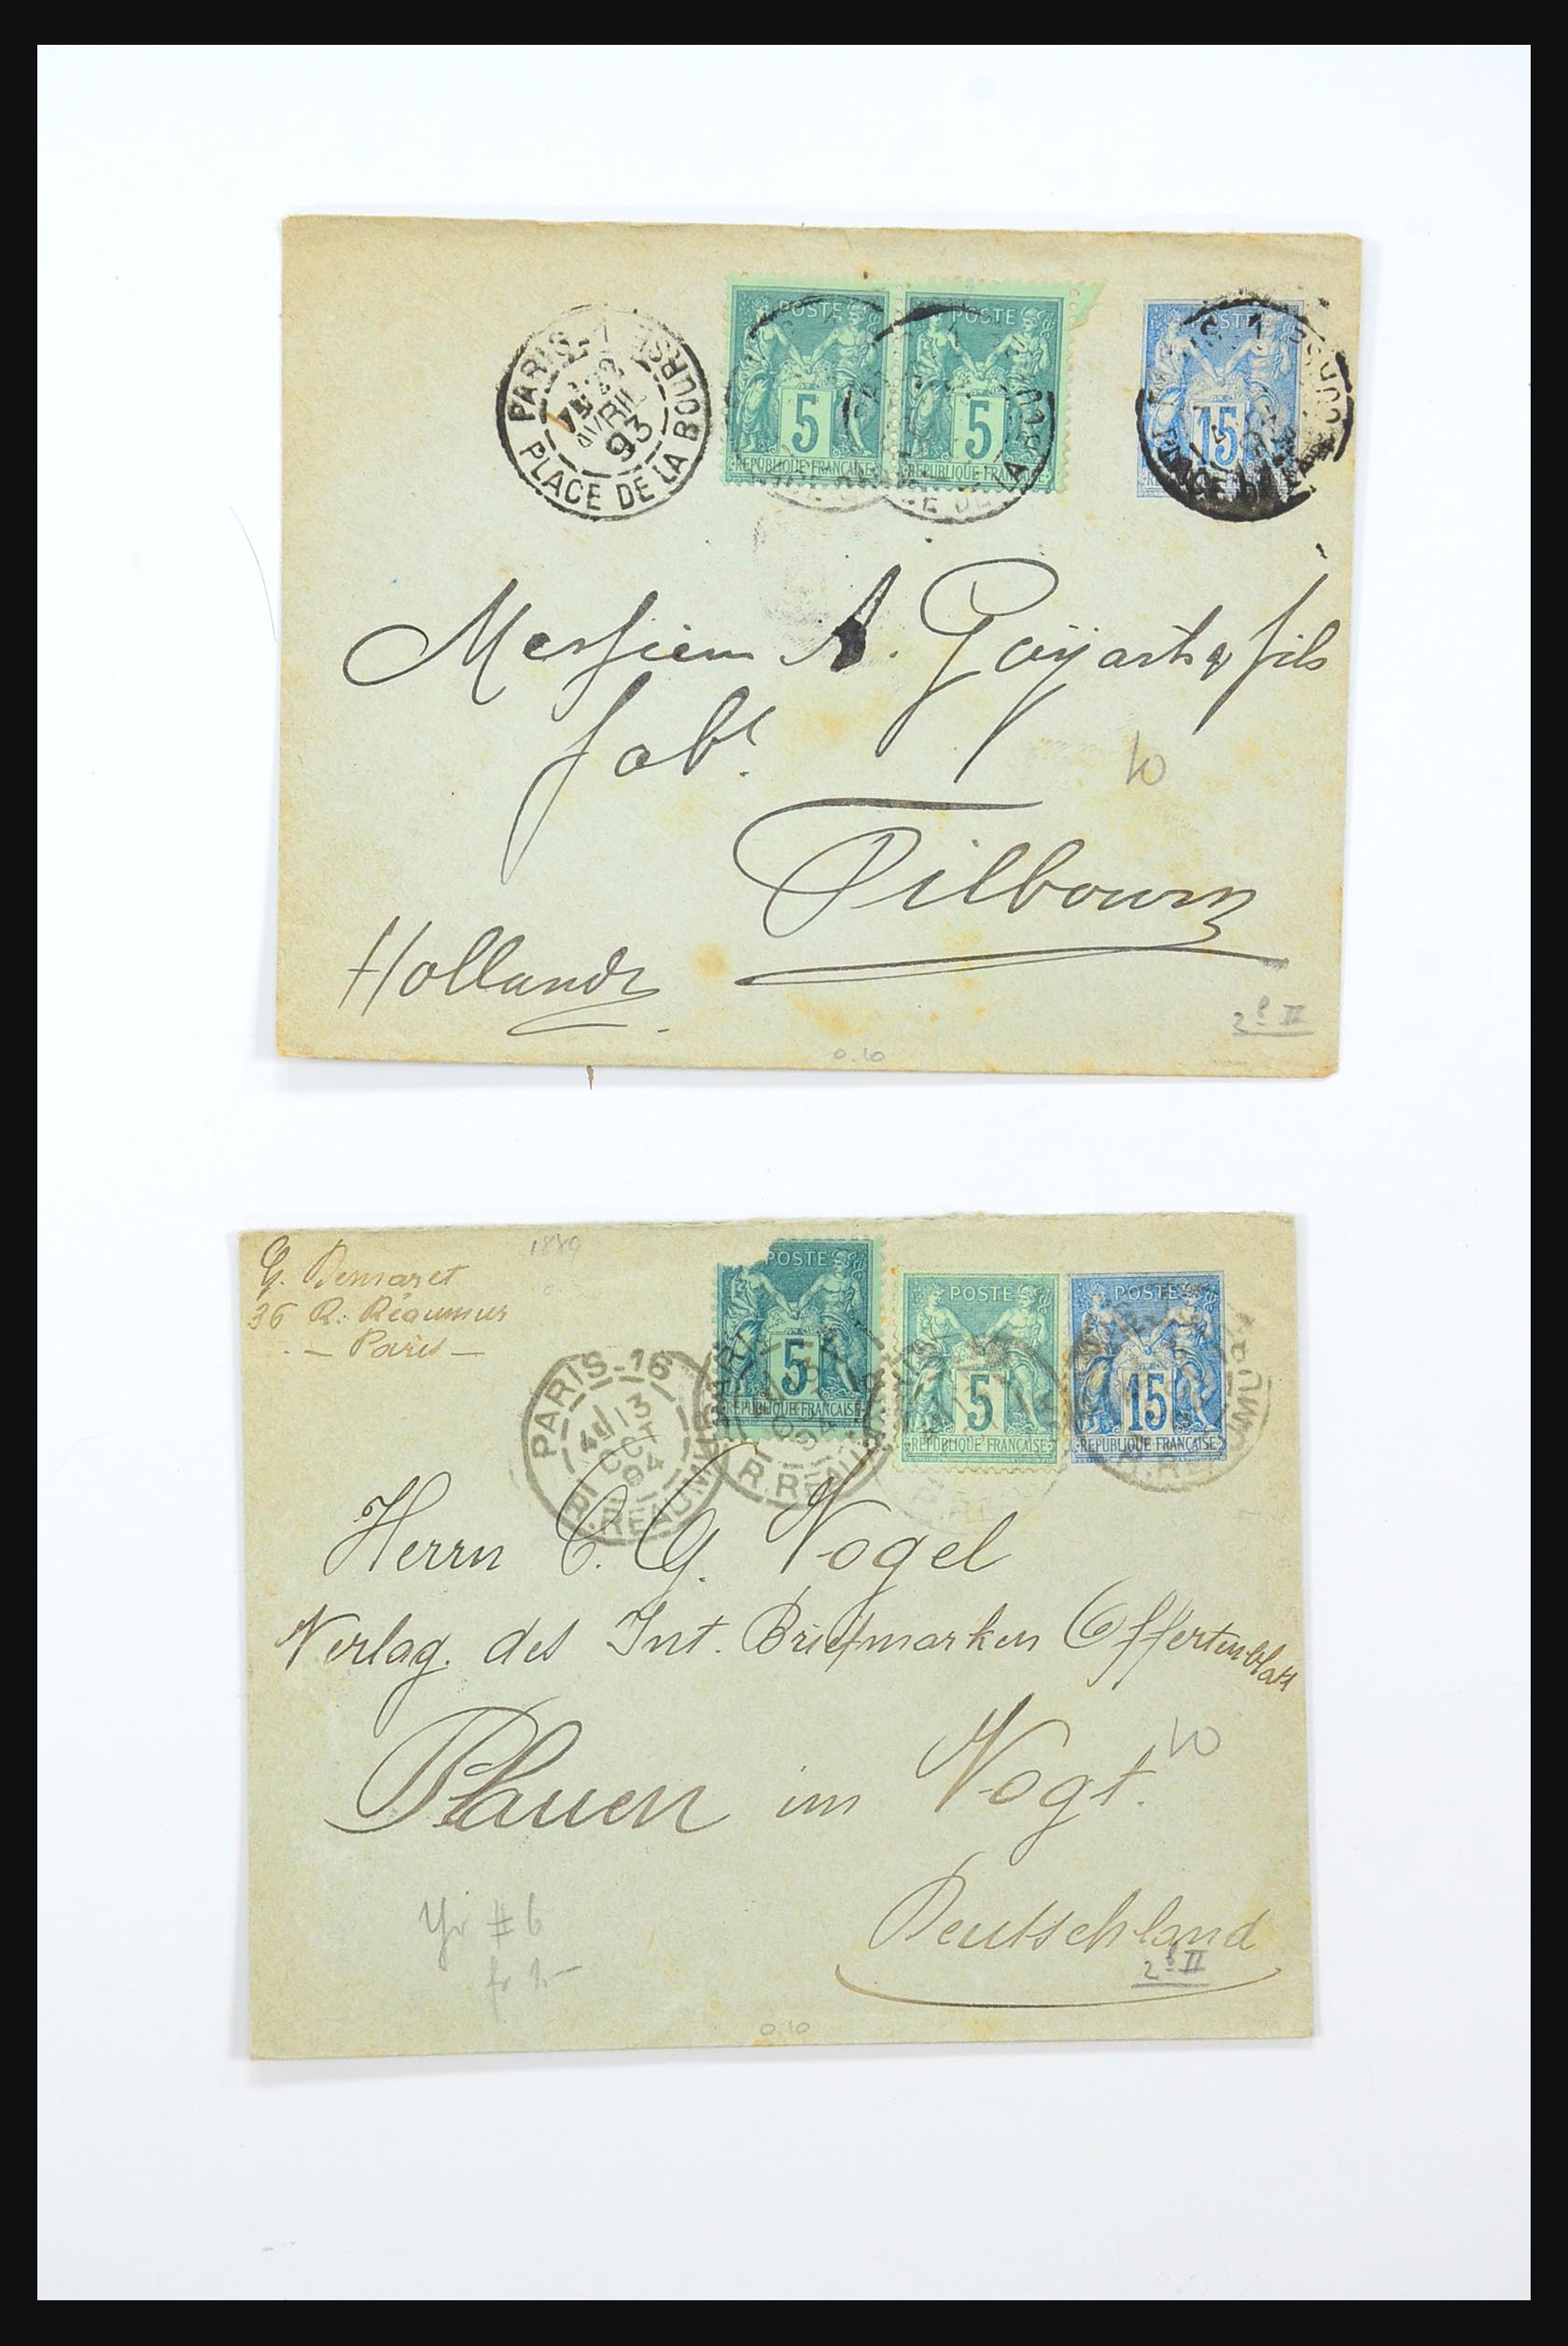 PARIS-1
22
AVRIL
93
PLACE DE LA BOURSE
POSTE
5
REPUBLIQUE FRANCAISE
POSTE
5
REPUBLIQUE FRANCAISE
15
Messieurs A. Goyarts & fils
fabt.
Tilbourg
Hollande
10
2 f II
0.10
G. Demaret
36 R. Réaumur
- Paris -
1889
POSTE
5
REPUBLIQUE FRANCAISE
POSTE
5
REPUBLIQUE FRANCAISE
POSTE
15
REPUBLIQUE FRANCAISE
PARIS-16
13
OCT
94
R. REAUMUR
Herrn C. G. Vogel
Verlag. des Int. Briefmarken Offertenblatt
Plauen im Vogt.
10
Deutschland
2 f II
Yv # 6
0.10